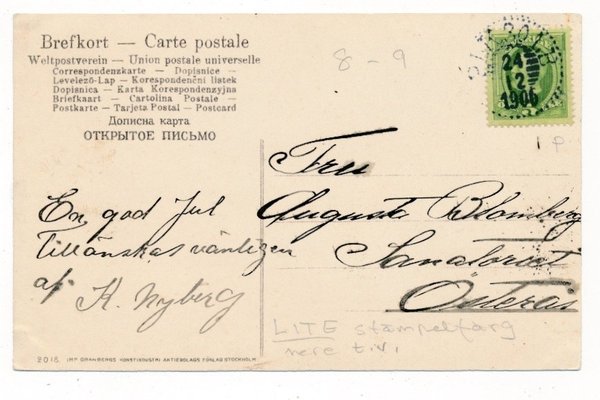 Brefkort — Carte postale
Weltpostverein — Union postale universelle
Correspondenzkarte — Dopisnice —
Levelező-Lap — Korespondenční lístek
Dopisnica — Karta Korespondenzyjna
Briefkaart — Cartolina Postale —
Postkarte — Tarjeta Postal — Postcard
Дописна карта
ОТКРЫТОЕ ПИСЬМО
8-9
24
2
1906
1 P
Fru
Augusta Blomberg
Sanatoriet
Österås
En god Jul
Tillönskas vänligen
af K. Nyberg
LITE stämpelfärg
nere t.v.
2018 IMP. GRANBERGS KONSTINDUSTRI AKTIEBOLAGS FÖRLAG STOCKHOLM